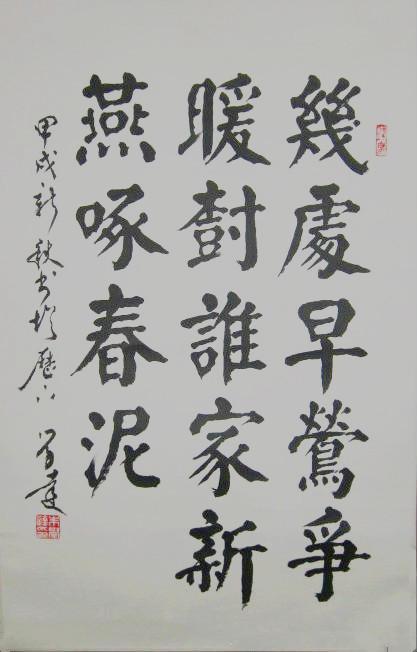 幾處早鶯爭
暖樹誰家新
燕啄春泥
甲戌新秋书於歷下